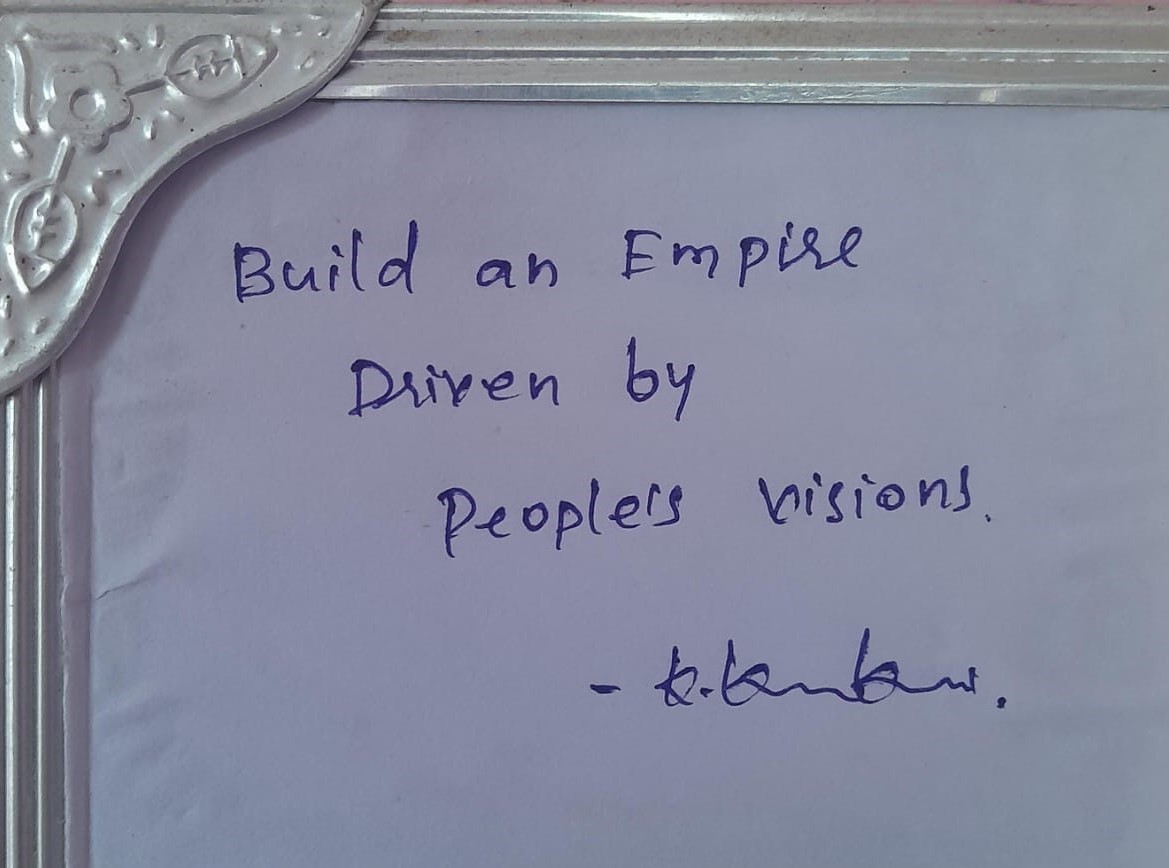 Build an Empire
Driven by
People's visions.